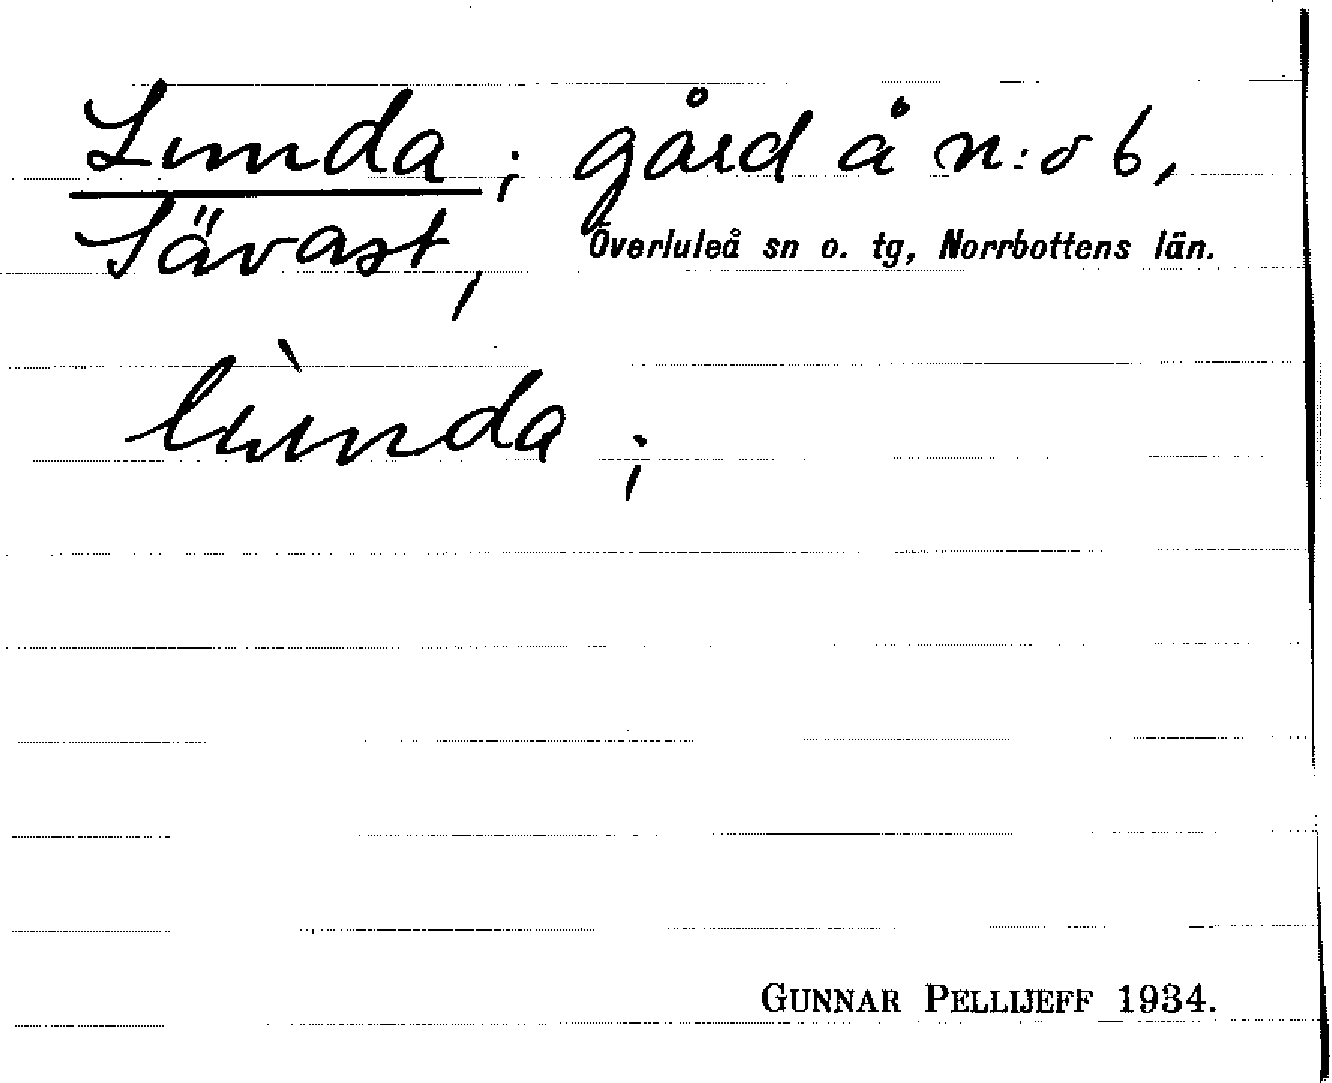 Lunda; gård å n:o 6,
Sävast, Överluleå sn o. tg, Norrbottens län.
lùnda;
GUNNAR PELLIJEFF 1934.